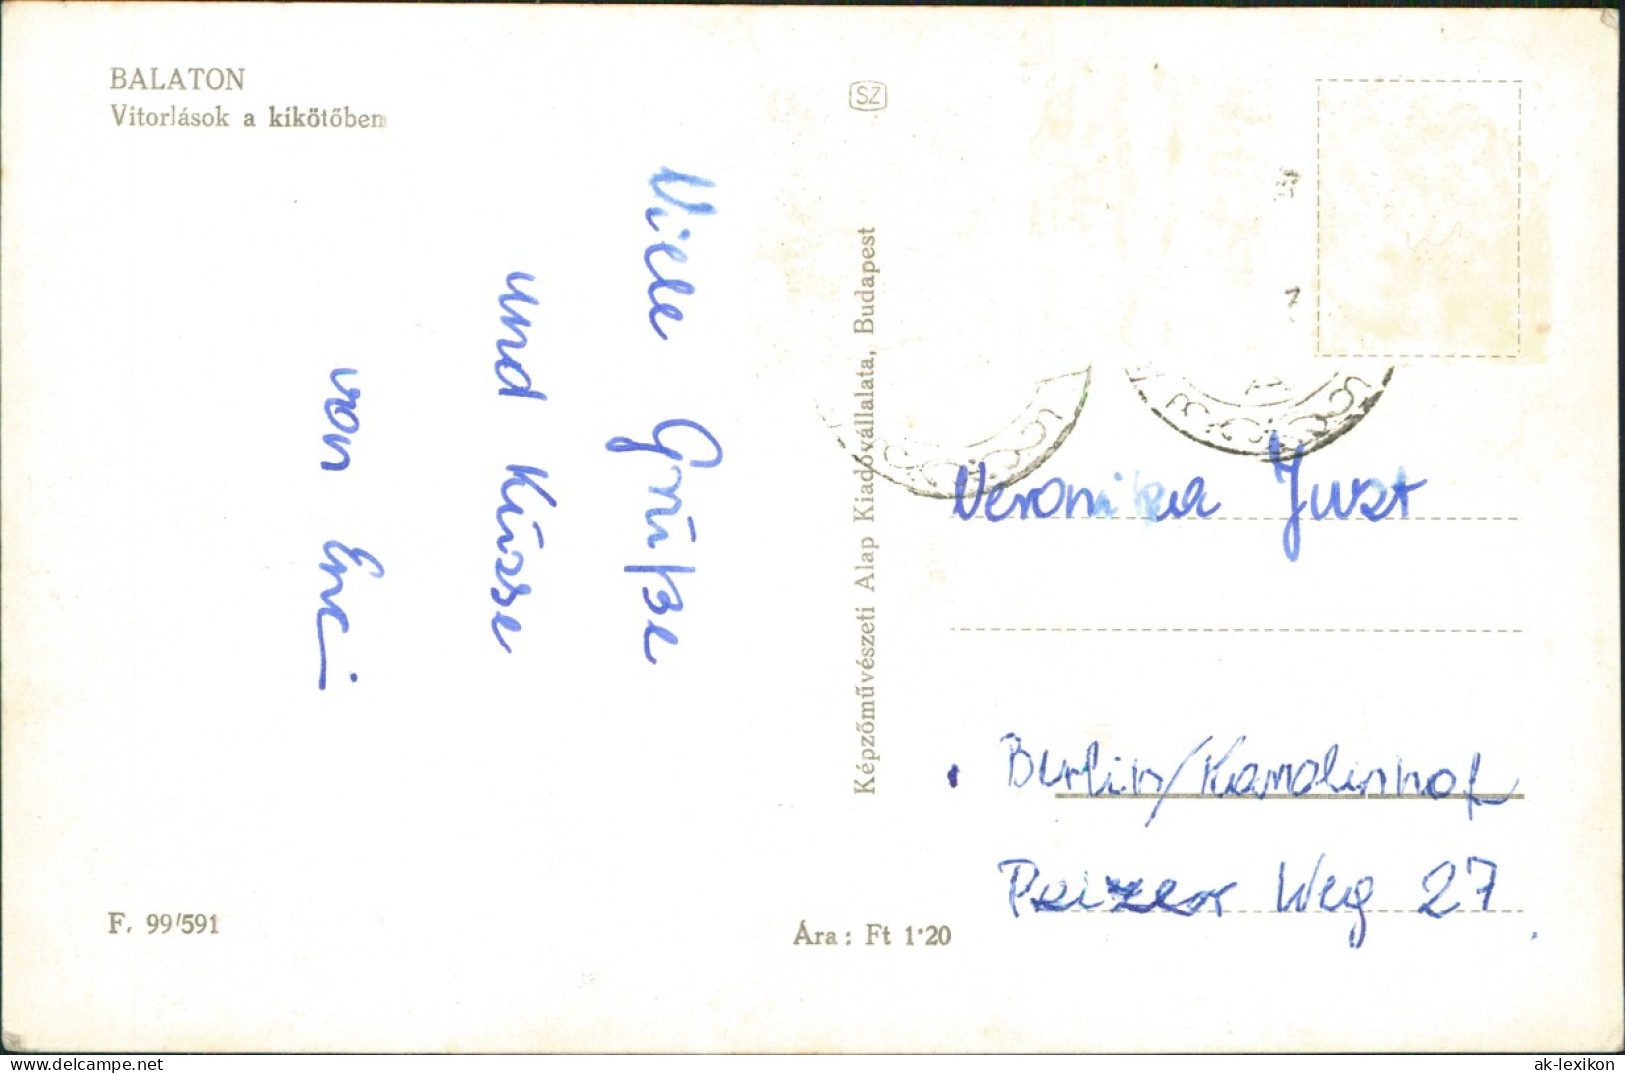 BALATON
Vitorlások a kikötőben
SZ
Viele Grüße
und Küsse
von Eni
Képzőművészeti Alap Kiadóvállalata, Budapest
Veronika Just
Berlin/Karolinhof
Peizer Weg 27
F. 99/591
Ára: Ft 1'20
delcampe.net
ak-lexikon